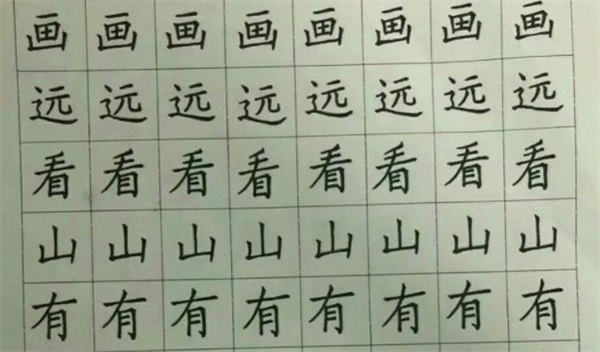 画画画画画画画画
远远远远远远远远
看看看看看看看看
山山山山山山山山
有有有有有有有有